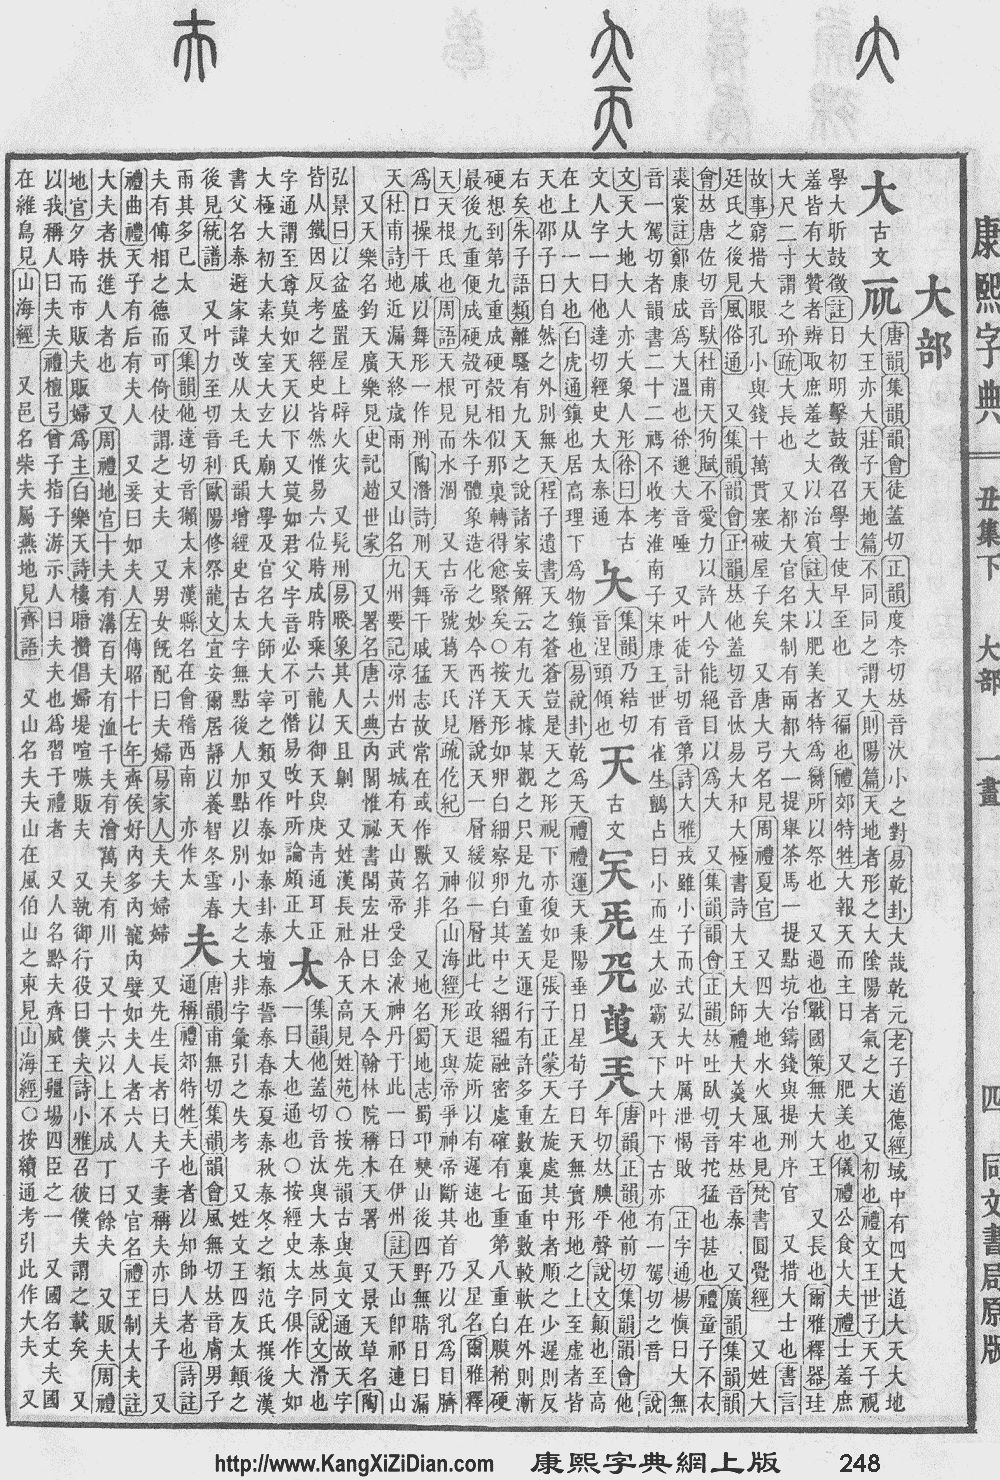 康熙字典 丑集下 大部 一畫 四 同文書局原版
大部
大 古文
唐韻集韻韻會徒蓋切正韻度柰切𠀤音汏小之對易乾卦大哉乾元老子道德經域中有四大道大天大地
大王亦大莊子天地篇不同同之謂大則陽篇天地者形之大陰陽者氣之大 又初也禮文王世子天子視
學大昕鼓徵註日初明擊鼓徵召學士使早至也 又徧也禮郊特牲大報天而主日 又肥美也儀禮公食大夫禮士羞庶
羞皆有大贊者辨取庶羞之大以治賓註大以肥美者特爲臠所以祭也 又過也戰國策無大大王 又長也爾雅釋器珪
大尺二寸謂之玠疏大長也 又都大官名宋制有兩都大一提舉茶馬一提點坑冶鑄錢與提刑序官 又措大士也書言
故事窮措大眼孔小與錢十萬貫塞破屋子矣 又唐大弓名見周禮夏官 又四大地水火風也見梵書圓覺經 又姓大
廷氏之後見風俗通 又集韻韻會正韻𠀤他蓋切音忲易大和大極書詩大王大師禮大羹大牢𠀤音泰 又廣韻集韻韻
會𠀤唐佐切音馱杜甫天狗賦不愛力以許人兮能絕目以爲大 又集韻韻會正韻𠀤吐臥切音拕猛也甚也禮童子不衣
裘裳註鄭康成爲大溫也徐邈大音唾 又叶徒計切音第詩大雅戎雖小子而式弘大叶厲泄愒敗 正字通楊愼曰大無
音一駕切者韻書二十二禡不收考淮南子宋康王世有雀生鸇占曰小而生大必霸天下大叶下古亦有一駕切之音 說
文天大地大人亦大象人形徐曰本古
文人字一曰他達切經史大太泰通
夨
集韻乃結切
音涅頭傾也
天 古文
唐韻正韻他前切集韻韻會他
年切𠀤腆平聲說文顚也至高
在上从一大也白虎通鎭也居高理下爲物鎭也易說卦乾爲天禮禮運天秉陽垂日星荀子曰天無實形地之上至虛者皆
天也邵子曰自然之外別無天程子遺書天之蒼蒼豈是天之形視下亦復如是張子正蒙天左旋處其中者順之少遲則反
右矣朱子語類離騷有九天之說諸家妄解云有九天據某觀之只是九重蓋天運行有許多重數裏面重數較軟在外則漸
硬想到第九重成硬殼相似那裏轉得愈緊矣○按天形如卵白細察卵白其中之絪縕融密處確有七重第八重白膜稍硬
最後九重便成硬殼可見朱子體象造化之妙今西洋曆說天一層緩似一層此七政退旋所以有遲速也 又星名爾雅釋
天天根氏也周語天根見而水涸 又古帝號葛天氏見疏仡紀 又神名山海經形天與帝爭神帝斷其首乃以乳爲目臍
爲口操干戚以舞形一作刑陶潛詩刑天舞干戚猛志故常在或作獸名非 又地名蜀地志蜀邛僰山後四野無晴日曰漏
天杜甫詩地近漏天終歲雨 又山名九州要記凉州古武城有天山黃帝受金液神丹于此一曰在伊州註天山卽祁連山
又天樂名鈞天廣樂見史記趙世家 又署名唐六典內閣惟祕書閣宏壯曰木天今翰林院稱木天署 又景天草名陶
弘景曰以盆盛置屋上辟火灾 又髡刑易睽象其人天且劓 又姓漢長社令天高見姓苑○按先韻古與眞文通故天字
皆从鐵因反考之經史皆然惟易六位時成時乘六龍以御天與庚靑通耳正
字通謂至尊莫如天天以下又莫如君父字音必不可僭易攺叶所論頗正大
太
集韻他蓋切音汰與大泰𠀤同說文滑也
一曰大也通也○按經史太字俱作大如
大極大初大素大室大玄大廟大學及官名大師大宰之類又作泰如泰卦泰壇泰誓泰春泰夏泰秋泰冬之類范氏撰後漢
書父名泰避家諱改从太毛氏韻增經史古太字無點後人加點以別小大之大非字彙引之失考 又姓文王四友太顚之
後見統譜 又叶力至切音利歐陽修祭龍文宜安爾居靜以養智冬雪春
雨其多已太 又集韻他達切音獺太末漢縣名在會稽西南 亦作大
夫
唐韻甫無切集韻韻會風無切𠀤音膚男子
通稱禮郊特牲夫也者以知帥人者也詩註
夫有傳相之德而可倚仗謂之丈夫 又男女旣配曰夫婦易家人夫夫婦婦 又先生長者曰夫子妻稱夫亦曰夫子 又
禮曲禮天子有后有夫人 又妾曰如夫人左傳昭十七年齊侯好內多內寵內嬖如夫人者六人 又官名禮王制大夫註
大夫者扶進人者也 又周禮地官十夫有溝百夫有洫千夫有澮萬夫有川 又十六以上不成丁曰餘夫 又販夫周禮
地官夕時而市販夫販婦爲主白樂天詩樓暗攢倡婦堤喧嗾販夫 又執御行役曰僕夫詩小雅召彼僕夫謂之載矣 又
以我稱人曰夫夫禮檀弓曾子指子游示人曰夫夫也爲習于禮者 又人名黔夫齊威王疆埸四臣之一 又國名丈夫國
在維鳥見山海經 又邑名柴夫屬燕地見齊語 又山名夫夫山在風伯山之東見山海經○按續通考引此作大夫 又
http://www.KangXiZiDian.com 康熙字典網上版 248